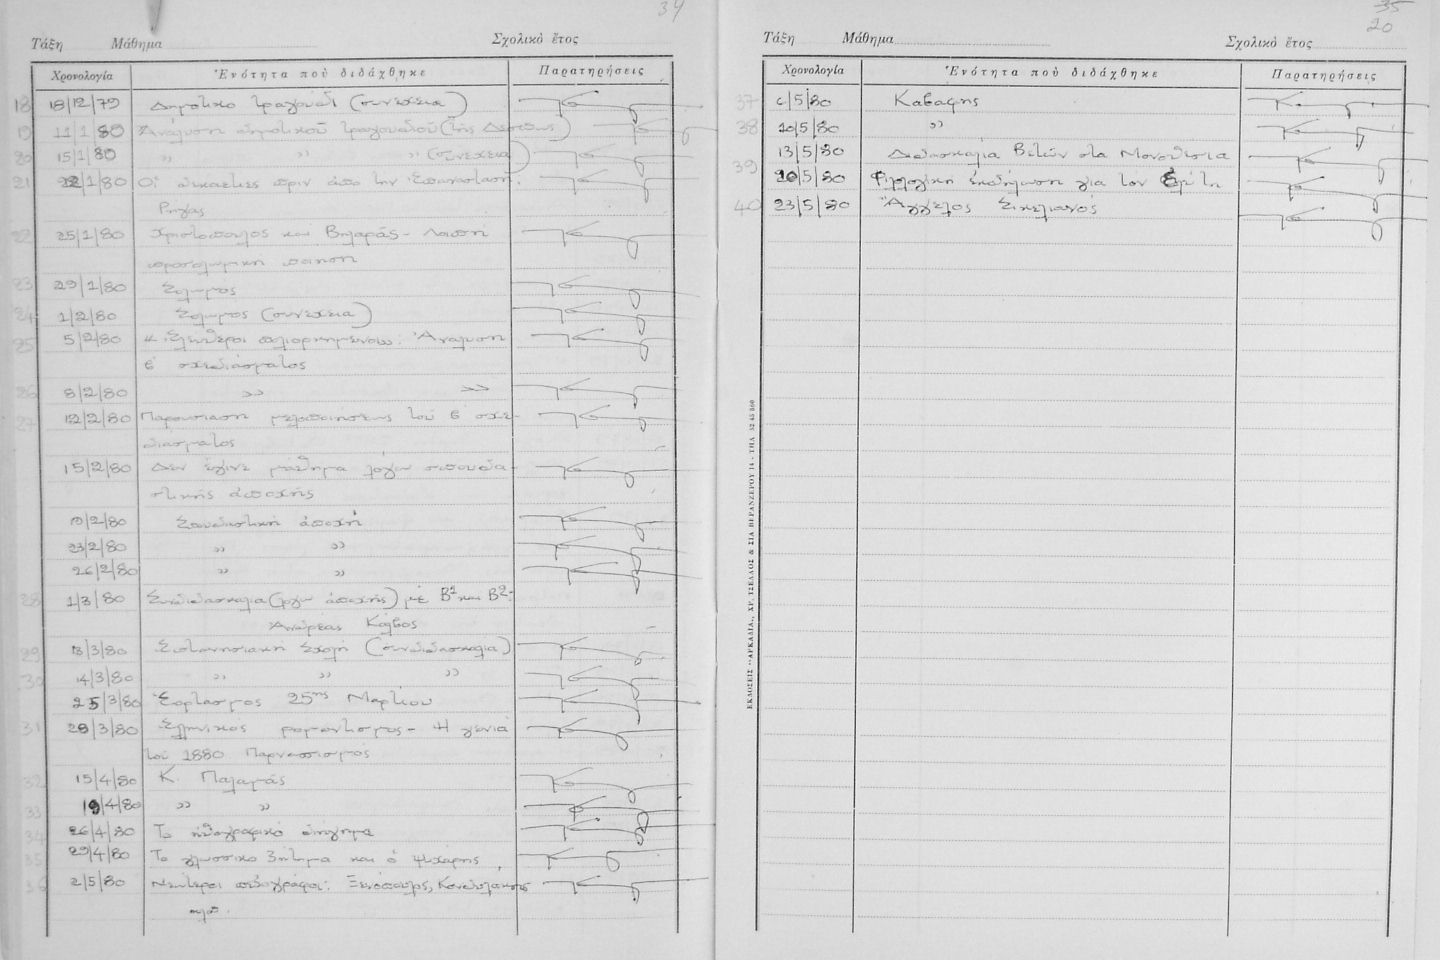 34
Τάξη Μάθημα Σχολικὸ ἔτος
Χρονολογία Ἑνότητα ποὺ διδάχθηκε Παρατηρήσεις
18 18/12/79 Δημοτικό τραγούδι (συνέχεια)
19 11/1/80 Ἀνάλυση δημοτικοῦ τραγουδιοῦ (τῆς Δέσπως)
20 15/1/80 " " " (συνέχεια)
21 22/1/80 Οἱ δεκαετίες πρίν ἀπό τήν Ἐπανάσταση.
Ρήγας
22 25/1/80 Χριστόπουλος καί Βηλαράς - Λοιπή
προσολωμική ποίηση
23 29/1/80 Σολωμός
24 1/2/80 Σολωμός (συνέχεια)
25 5/2/80 "Ἐλεύθεροι πολιορκημένοι": Ἀνάλυση
β΄ σχεδιάσματος
26 8/2/80 " "
27 12/2/80 Παρουσίαση μελοποιήσεως τοῦ β΄ σχε-
διάσματος
15/2/80 Δέν ἔγινε μάθημα λόγω σπουδα-
στικῆς ἀποχῆς
19/2/80 Σπουδαστική ἀποχή
23/2/80 " "
26/2/80 " "
28 1/3/80 Συνδιδασκαλία (λόγω ἀποχῆς) μέ Β1 καί Β2:
Ἀνδρέας Κάλβος
29 8/3/80 Ἑπτανησιακή Σχολή (συνδιδασκαλία)
30 14/3/80 " " "
25/3/80 Ἑορτασμός 25ης Μαρτίου
31 29/3/80 Ἑλληνικός ρομαντισμός - Ἡ γενιά
τοῦ 1880 Παρνασσισμός
32 15/4/80 Κ. Παλαμάς
33 19/4/80 " "
34 26/4/80 Τό ἠθογραφικό διήγημα
35 29/4/80 Τό γλωσσικό ζήτημα καί ὁ Ψυχάρης
36 2/5/80 Νεώτεροι πεζογράφοι: Ξενόπουλος, Κονδυλάκης
κλπ.
35
20
Τάξη Μάθημα Σχολικὸ ἔτος
Χρονολογία Ἑνότητα ποὺ διδάχθηκε Παρατηρήσεις
37 6/5/80 Καβάφης
38 10/5/80 "
39 13/5/80 Διδασκαλία Βετών στα Μονοθέσια
20/5/80 Φιλολογική ἐκδήλωση γιά τόν Ἐλύτη
40 23/5/80 Ἄγγελος Σικελιανός
ΕΚΔΟΣΕΙΣ "ΑΡΚΑΔΙΑ", ΧΡ. ΤΣΕΛΛΟΣ & ΣΙΑ ΒΕΡΑΝΖΕΡΟΥ 14 - ΤΗΛ. 52 45 560